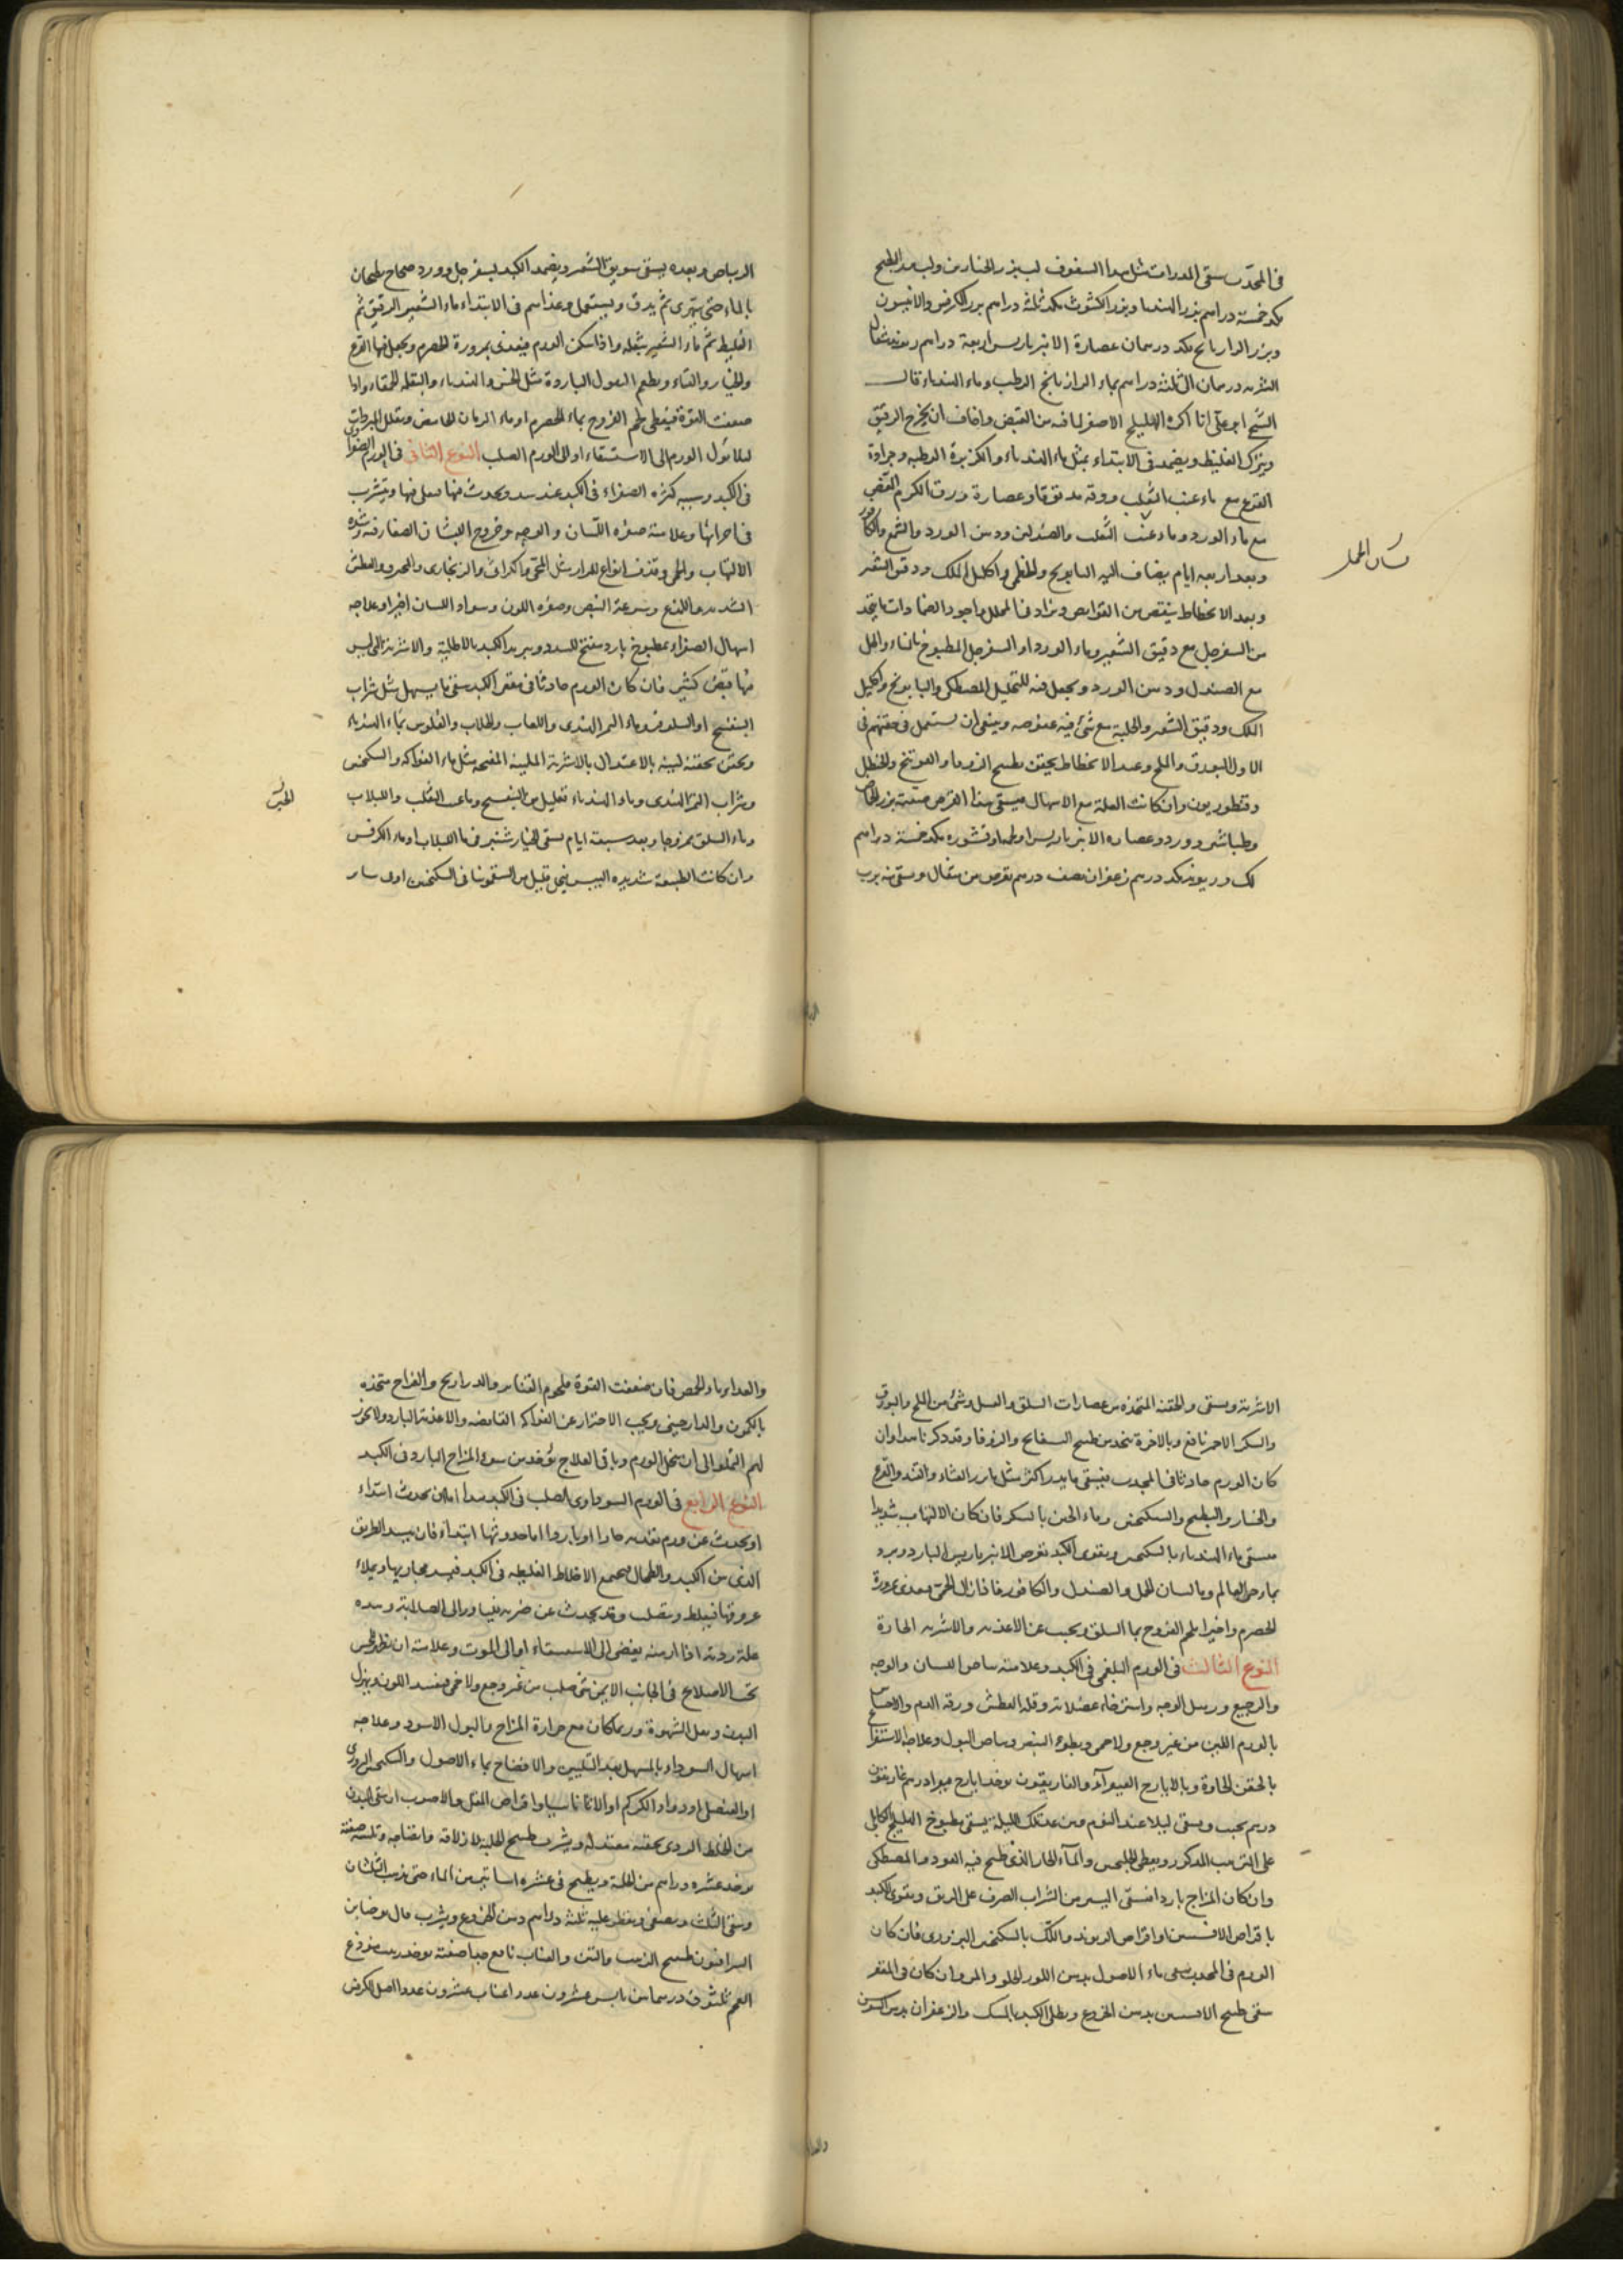 في المحدب سقي المدرات مثل هذا السفوف لب بزر الخيارين ولب بزر البطيخ
مكد خمسة دراهم بزر الهندبا وبزر الكشوث مكد ثلثة دراهم بزر الكرفس والانيسون
وبزر الرازيانج مكد درهمان عصارة الانبرباريس اربعة دراهم
الشربه درهمان الى ثلثة دراهم بماء الرازيانج الرطب وماء الهندباء قال
الشيخ ابو علي انا اكره الهليلج الاصفر لما فيه من القبض واخاف ان يخرج الرقيق
ويترك الغليظ ويضمد في الابتداء بمثل ماء الهندباء والكزبرة الرطبه وجرادة
القرع مع ماء عنب الثعلب وورقه مدقوقا وعصارة ورق الكرم الغض
مع ماء الورد وماء عنب الثعلب والصندلين ودهن الورد والشمع والكافور
وبعد اربعه ايام يضاف اليه البابونج والخطمي واكليل الملك ودقيق الشعير
وبعد الانحطاط ينقص من القوابض ويزاد في المحلل واجود الضمادات ما يتخذ
من السفرجل مع دقيق الشعير وماء الورد او السفرجل المطبوخ بالماء والخل
مع الصندل ودهن الورد ويجعل فيه للتحليل المصطكى والبابونج واكليل
الملك ودقيق الشعير والحلبة مع شئ فيه عفوصه وينبغي ان يستعمل في حقنهم في
الاول البورق والملح وعند الانحطاط يحقن بطبيخ الزوفا والفوتنج والحنظل
وقنطوريون وان كانت العلة مع الاسهال فيسقى هذا القرص صفته بزر الحماض
وطباشير وورد وعصاره الانبرباريس مكد خمسة دراهم
لك وريوند مكد درهم زعفران نصف درهم يقرص من مثقال ويسقى منه برب
الرباس وبعده يسقى سويق الشعير ويضمد الكبد بسفرجل وورد صحاح يطبخان
بالماء حتى يتهرى ثم يدق ويستعمل وغذاهم في الابتداء ماء الشعير الرقيق ثم
الغليظ ثم ماء الشعير بثفله واذا سكن الورم فيغذى بمرورة الحصرم ويجعل فيها القرع
والخيار والقثاء ويطعم البقول الباردة مثل الخس والهندباء والبقله الحمقاء واذا
ضعفت القوة فيعطى لحم الفروج بماء الحصرم او ماء الرمان الحامض ويقلل المبردات
لئلا يؤل الورم الى الاستسقاء او الى الورم الصلب النوع الثاني في الورم الصفراوي
في الكبد وسببه كثره الصفراء في الكبد عند سدد يحدث فيها فيغلي فيها ويتشرب
في اجرائها وعلامته صفره اللسان والوجه وخروج البثران الصغار فيه وشدة
الالتهاب والحمى وقذف انواع المرار مثل المحي والكراثي والزنجاري والمحرو والعطش
الشديد واللذع وسرعة النبض وصفره اللون وسواد اللسان اخيرا وعلاجه
اسهال الصفراء بمطبوخ بارد مفتح للسدد وتبريد الكبد بالاطلية والاشربة التي ليس
فيها قبض كثير فان كان الورم حادثا في مقعر الكبد سقي ما يسهل مثل شراب
البنفسج او النيلوفر وماء التمر الهندي واللعاب والجلاب والفلوس بماء الهندباء
ويحقن بحقنه لينة بالاعتدال بالاشربة الملينة المفتحه مثل ماء الفواكه والسكنجبين
وشراب التمر الهندي وماء الهندباء بقليل من البنفسج وماء عنب الثعلب واللبلاب
وماء السلق ممزوجا وبعد سبعة ايام يسقى الخيار شنبر في ماء اللبلاب او ماء الكرفس
وان كانت الطبيعة شديده اليبس فيجعل قليل من السقمونيا في السكنجبين او في ساير
الاشربة ويسقى والحقنه المتخذه من عصارات السلق والعسل وشئ من الملح والبورق
والسكر الاحمر نافع وبالاخرة يتخذ من طبيخ البسفايج والزوفا وقد ذكرناها وان
كان الورم حادثا في المحدب فيسقى ما يدر اكثر مثل بزر القثاء والقثد والقرع
والخيار والبطيخ والسكنجبين وماء الجبن بالسكر فان كان الالتهاب شديدا
فيسقى ماء الهندباء بالسكنجبين ويقوى الكبد بقرص الانبرباريس البارد ويبرد
بماء حي العالم وماء لسان الحمل والصندل والكافور فاذا زال الحمى فيغذى بمرورة
الحصرم واخيرا بلحم الفروج بماء السلق ويجب عن الاغذيه والاشربه الحارة
النوع الثالث في الورم البلغمي في الكبد وعلامته بياض اللسان والوجه
والرجيع وترهل الوجه واسترخاء عضلاته وقلة العطش ورقة الدم والاحساس
بالورم اللين من غير وجع ولا حمى وبطوء النبض وبياض البول وعلاجه الاستفراغ
بالحقن الحادة وبالايارج الفيقرا والغاريقون يوخذ ايارج فيقرا درهم غاريقون
درهم يحبب ويسقى ليلا عند النوم ومن غد تلك الليلة يسقى مطبوخ الهليلج الكابلي
على الترتيب المذكور ويعطى الجلنجبين والماء الحار الذي طبخ فيه العود والمصطكى
وان كان المزاج باردا فسقي اليسير من الشراب الصرف على الريق ويقوى الكبد
باقراص الافسنتين او اقراص الريوند واللك بالسكنجبين البزوري فان كان
الورم في المحدب سقي ماء الاصول بدهن اللوز الحلو والمر وان كان في المقعر
سقي طبيخ الافسنتين بدهن الخروع ويطلى الكبد بالمسك والزعفران بدهن السوسن
والغذاء ماء الحمص فان ضعفت القوة فلحوم القنابر والدراريج والفراخ متخذه
بالكمون والدارچيني ويجب الاحتراز عن الفواكه القابضه والاغذية الباردة ولا يجوز
لهم التملو الى ان ينحل الورم وباقي العلاج يؤخذ من سوء المزاج البارد في الكبد
النوع الرابع في الورم السوداوي الصلب في الكبد هذا اما ان يحدث ابتداء
او يحدث عن ورم تقدمه حارا او باردا اما حدوثها ابتداء فان يسد الطريق
الذي بين الكبد والطحال فيجتمع الاخلاط الغليظه في الكبد فيسد مجاريها ويملاء
عروقها فيغلظ ويتصلب وقد يحدث عن ضربه فيبادر الى الصلابة وهذه
علة رديه اذا ازمنه يفضى الى الاستسقاء او الى الموت وعلامته ان يظهر للحس
تحت الاضلاع في الجانب الايمن شئ صلب من غير وجع ولا حمى فيفسد اللون ويهزل
البدن ويقل الشهوة وربما كان مع حرارة المزاج والبول الاسود وعلاجه
اسهال السوداء بالمسهل بعد التليين والانضاج بماء الاصول والسكنجبين البزوري
او العنصل او دواء الكركم او الاثاناسيا واقراص المقل والاصوب ان ينقى البدن
من الخلط الردي بحقنه معتدله ويشرب طبيخ الحلبة لازلاقه وانضاجه وتليينه صفته
يوخذ عشره دراهم من الحلبة ويطبخ في عشره اساتير من الماء حتى يذهب الثلثان
ويبقى الثلث ويصفى ويقطر عليه ثلثة دراهم دهن الخروع ويشرب قال يوحنا بن
السرافيون طبيخ الزبيب والتين والعناب نافع جدا صفته يوخذ زبيب منزوع
العجم ثلثون درهما تين يابس عشرون عددا عناب عشرون عددا اصل الكرفس
لسان الحمل
الجبن